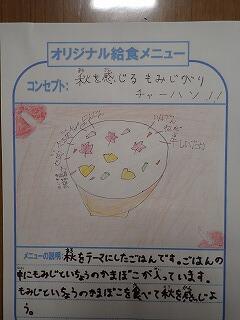 オリジナル給食メニュー
コンセプト: 秋を感じる もみじがり
チャーハン！！
メニューの説明: 秋をテーマにしたごはんです。ごはんの
中にもみじといちょうのかまぼこが入っています。
もみじといちょうのかまぼこを食べて秋を感じよ
う。